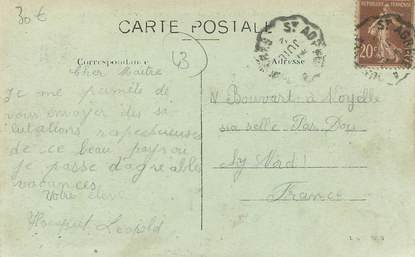 30€
CARTE POSTALE
43
Correspondance
Adresse
Cher Maître
Je me permets de
vous envoyer des sa
lutations respectueuses
de ce beau pays où
je passe d'agréables
vacances
Votre élève
Léopold
Bouvart à Noyelle
sur selle Par Dou
ay Nord
France
20